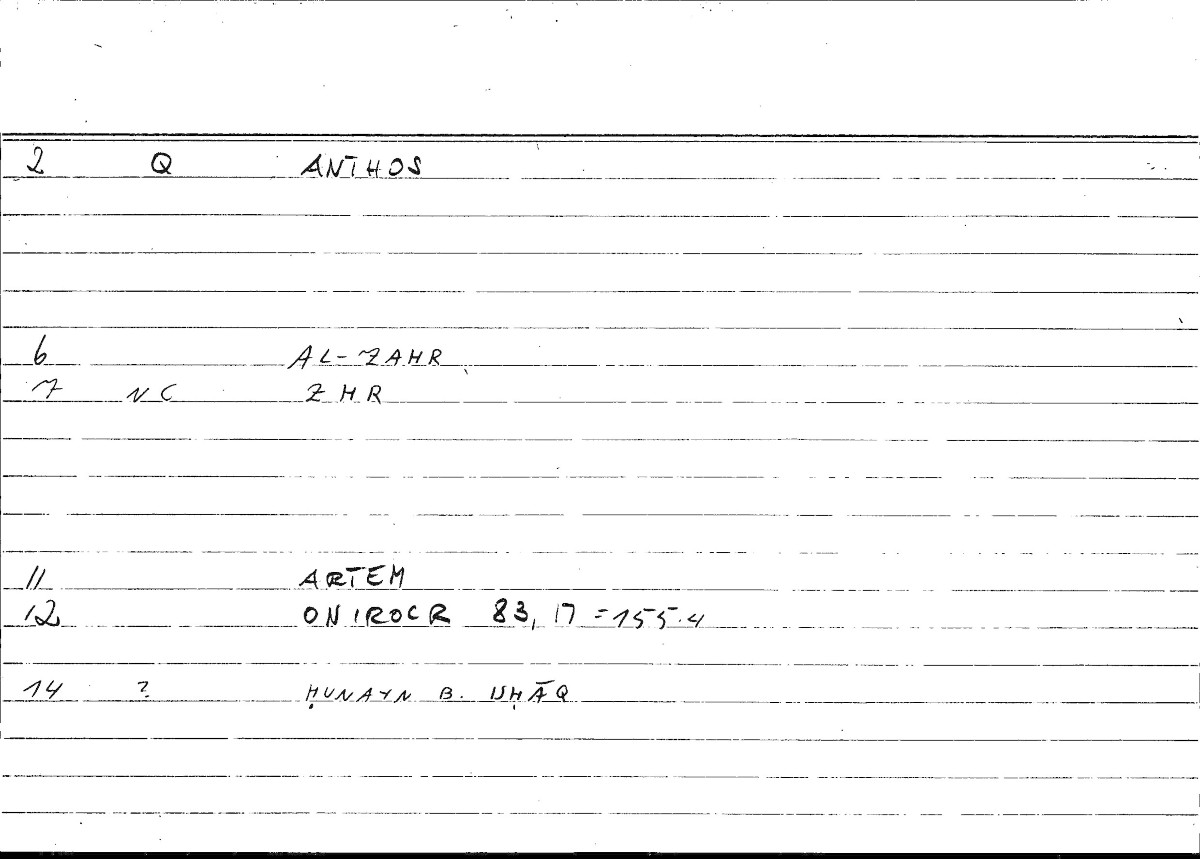 2 Q ANTHOS
6 AL-ZAHR
7 NC ZHR
11 ARTEM
12 ONIROCR 83, 17 = 155.4
14 ? ḤUNAYN B. ISḤĀQ